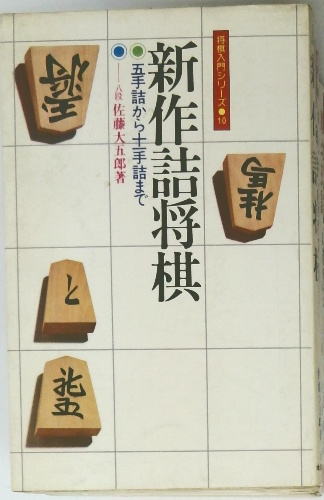 将棋入門シリーズ●10
新作詰将棋
五手詰から十一手詰まで
八段 佐藤大五郎著
桂馬
と